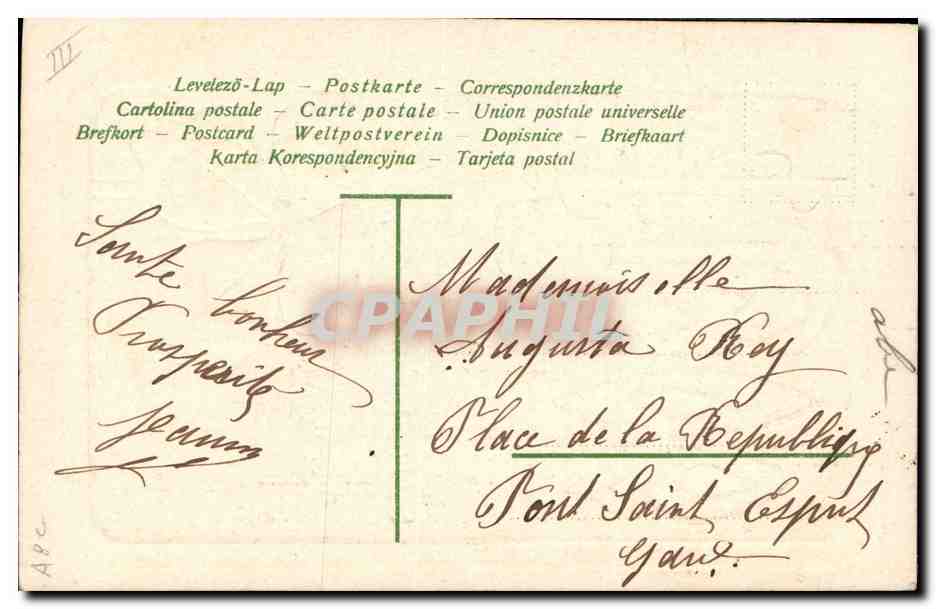 III
Levelező-Lap – Postkarte – Correspondenzkarte
Cartolina postale – Carte postale – Union postale universelle
Brefkort – Postcard – Weltpostverein – Dopisnice – Briefkaart
Karta Korespondencyjna – Tarjeta postal
Sainte
bonheur
Prosperité
Jeanne
Mademoiselle
Augusta Rey
Place de la Republique
Pont Saint Esprit
Gard.
CPAPHIL
A8c